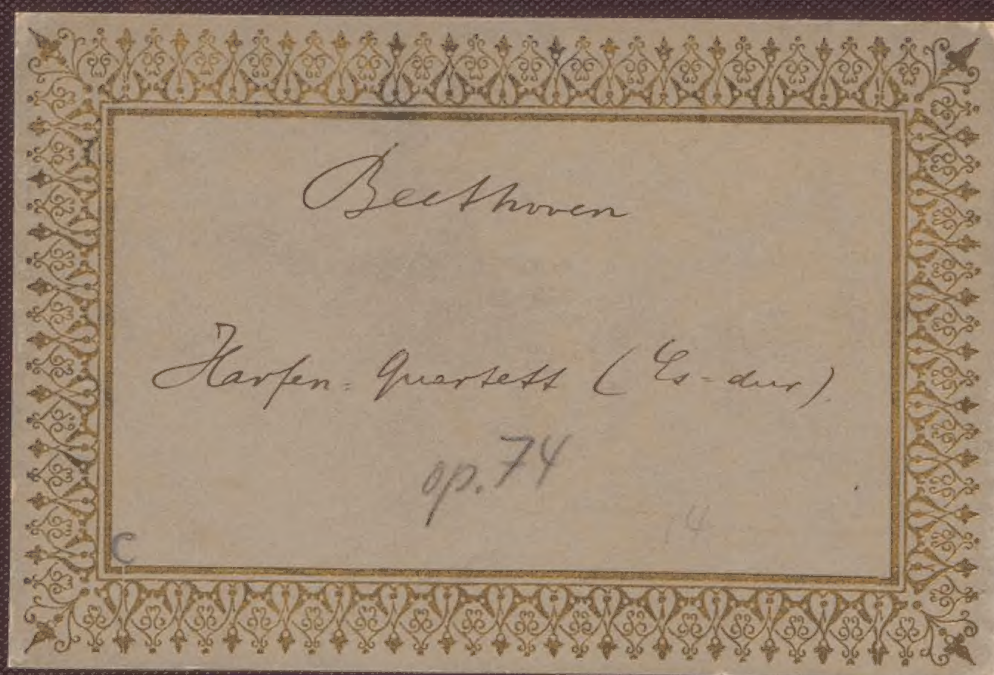 Beethoven
Harfen=Quartett (Es-dur).
op. 74
14
C